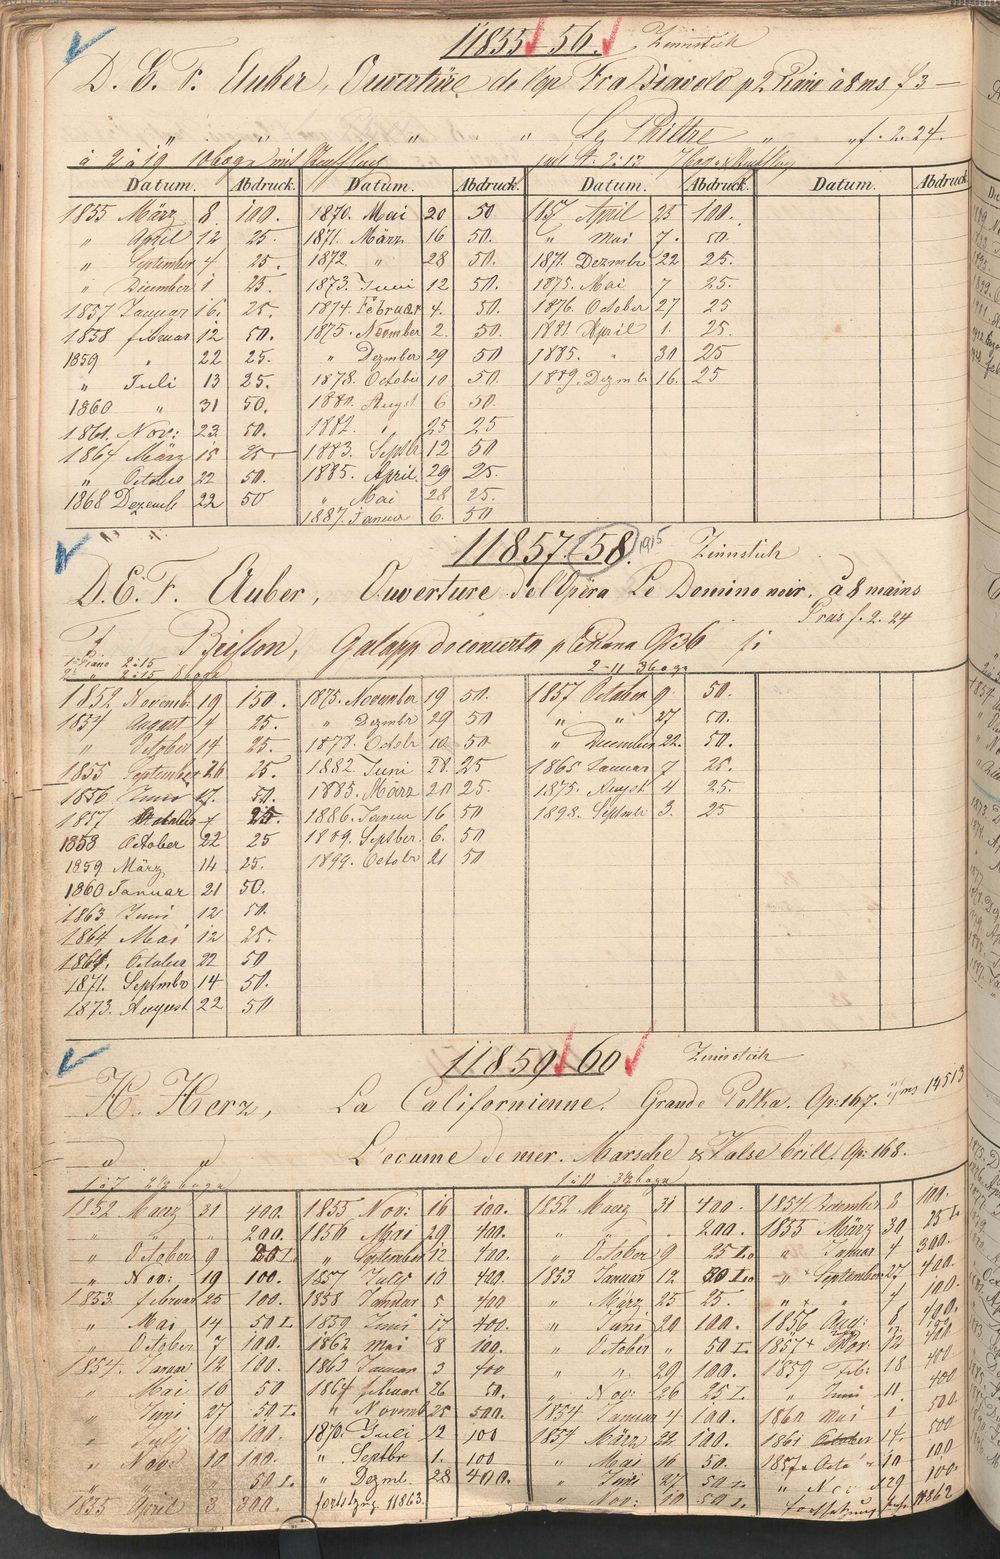 11855-56. Zinnstich
D. E. F. Auber, Ouverture de l'Op Fra Diavolo p 2 Piano à 8 ms f 3 —
" " " " " Le Philtre " " f. 2. 24.
Datum. Abdruck. Datum. Abdruck. Datum. Abdruck. Datum. Abdruck.
1855 März 8 100. 1870. Mai 20 50 April 25 100.
" April 12 25. 1871. März 16 50. " Mai 7. 50.
" September 4 25. 1872. " 28 50. 1871. Dezmbr 22 25.
" December 1 25. 1873. Juni 12 50. 1875. Mai 7 25.
1857 Januar 16. 25. 1874. Februar 4. 50. 1876. October 27 25
1858 februar 12 50. 1875. November 2. 50. 1881. April 1. 25.
1859 " 22 25. " Dezmber 29 50 1885. " 30 25
" Juli 13 25. 1878. October 10 50. 1889. Dezmb 16. 25
1860 " 31 50. 1880. Augst 6 50.
1861. Nov: 23. 50. 1882. " 25 25
1864 März 15 25. 1883. Septbr 12 50
" October 22 50. 1885. April. 29 25.
1868 Dezemb 22 50 " Mai 28 25.
1887. Januar 6. 50
11857-58. 1915 Zinnstich
D. E. F. Auber, Ouverture de l'Opéra Le Domino noir. à 8 mains
Preis f. 2. 24
Galopp de concerto p Piano Op 36
1852 Novemb. 19 150. 1875. November 19 50. 1857 October 9 50.
1854 August 4 25. " Dezmbr 29 50 " " 27 50.
" October 14 25. 1878. Octobr 10 50 " December 22. 50.
1855 September 26 25. 1882. Juni 28. 25 1865 Januar 7 25.
1856 Juni 17. 50. 1885. März 20 25. 1875. Augst 4 25.
1857 October 7 25. 1886. Januar 16 50 1898. Septmbr 3. 25
1858 October 22 25 1889. Septber. 6. 50
1859 März 14 25. 1899. October 21 50
1860 Januar 21 50.
1863 Juni 12 50.
1864 Mai 12 25.
October 22 50
1871. Septmbr 14 50.
1873. August 22 50
11859-60. Zinnstich
H. Herz, La Californienne. Grande Polka. Op: 167. ms 14513
" " L'ecume de mer. Marsche & Valse brill. Op: 168.
1852 Marz 31 400. 1855 Nov: 16 100. 1852 Marz 31 400. 1854 December 2 100.
" " 200. 1856 Mai 29. 400. " " 200. 1855 März 30 25 I.
" October 9 September 12 400. " October 9 25 I. " Januar 4 300.
" Nov: 19 100. 1857 July 10 400. 1853 Januar 12 " September 27 400.
1853. februar 25 100. 1858 Januar 5 400 " März 25 25. " " 4 100.
" Mai 14 50 I. 1859 Juni 17 400. " Juni 20 100. 1856 Aug: 8 400.
" October 7 100. 1862 Mai 8 100. " October " 50 I. 1857 Nov: 12 400
1854. Januar 12 100. 1863 Januar 3 400 " " 29 100. 1859 Feb: 18 400.
" Mai 16 50 1864 februar 26 50. " Nov: 26 25 I. " Juni 11 400
" Juni 27 50 I. " Novemb 25 500. 1854 Januar 4 100. 1860 Mai 1 500.
" Juli 10 100. 1870. Juli 12 100 1854 März 22 100. 1861 October 14. 500
" Nov: 10 100. " Septbr 1. 100 " Mai 16 50 1857 Octo " 10 100
" " 50 I. " Dezmb. 28 400. " Juni 27 50 I. " Nov 29 100.
1855 April 3 200. fortstzg 11863. " Nov: 10 50 I. Fortsetzung 11862